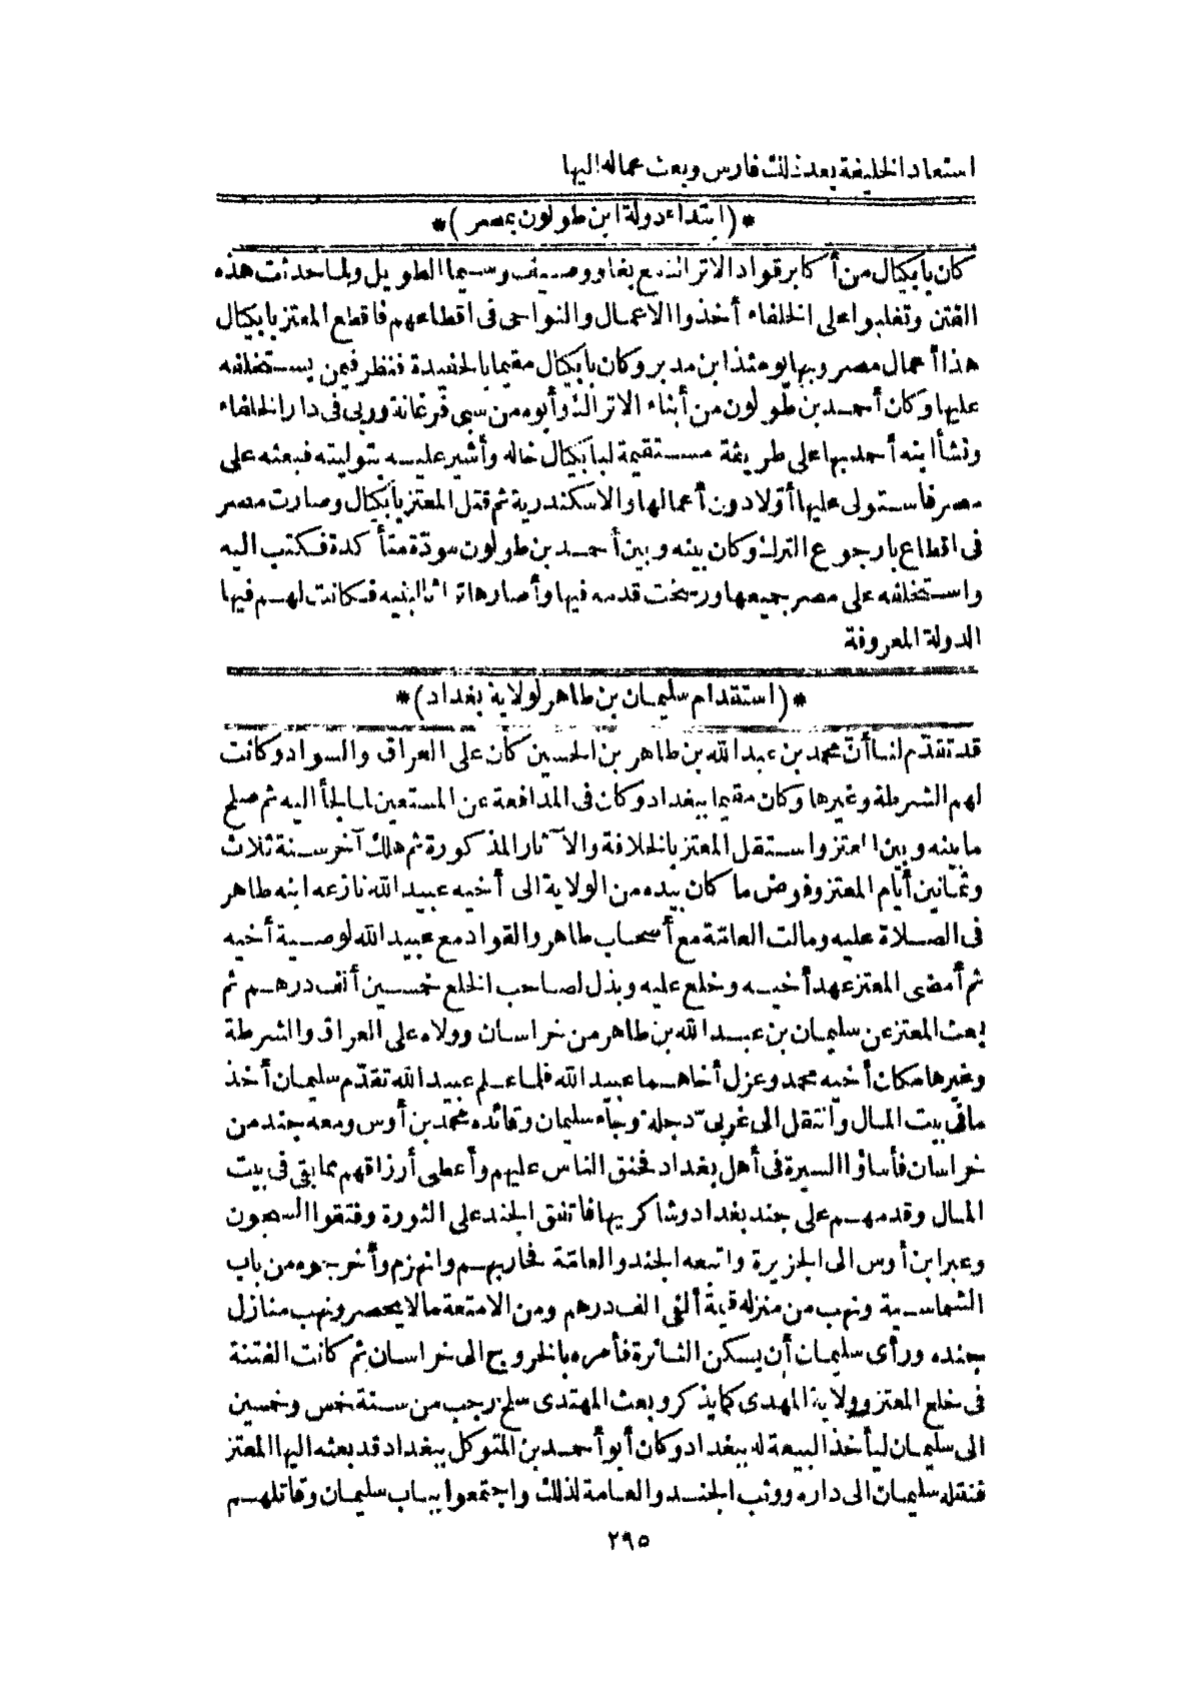 استعاد الخليفة بعد ذلك فارس وبعث عماله اليها
* (ابتداء دولة ابن طولون بمصر) *
كان بابكيال من أكابر قواد الاتراك مع بغا ووصيف وسيما الطويل ولما حدثت هذه
الفتن وتغلبوا على الخلفاء أخذوا الاعمال والنواحى فى اقطاعهم فاقطع المعتز بابكيال
هذا أعمال مصر وبها يومئذ ابن مدبر وكان بابكيال مقيما بالحضرة فنظر فيمن يستخلفه
عليها وكان أحمد بن طولون من أبناء الاتراك وأبوه من سبى فرغانة وربى فى دار الخلفاء
ونشأ ابنه أحمد بها على طريقة مستقيمة لبابكيال خاله وأشير عليه بتوليته فبعثه على
مصر فاستولى عليها أولا دون أعمالها والاسكندرية ثم قتل المعتز بابكيال وصارت مصر
فى اقطاع يارجوع الترك وكان بينه وبين أحمد بن طولون مودّة متأكدة فكتب اليه
واستخلفه على مصر جميعها ورسخت قدمه فيها وأصارها تراثا لبنيه فكانت لهم فيها
الدولة المعروفة
* (استقدام سليمان بن طاهر لولاية بغداد) *
قد تقدّم لنا أنّ محمد بن عبد الله بن طاهر بن الحسين كان على العراق والسواد وكانت
لهم الشرطة وغيرها وكان مقيما ببغداد وكان فى المدافعة عن المستعين لما لجأ اليه ثم صلح
ما بينه وبين المعتز واستقل المعتز بالخلافة والآثار المذكورة ثم هلك آخر سنة ثلاث
وثمانين أيام المعتز وفوض ما كان بيده من الولاية الى أخيه عبيد الله نازعه ابنه طاهر
فى الصلاة عليه ومالت العامّة مع أصحاب طاهر والقواد مع عبيد الله لوصية أخيه
ثم أمضى المعتز عهد أخيه وخلع عليه وبذل لصاحب الخلع خمسين ألف درهم ثم
بعث المعتز عن سليمان بن عبد الله بن طاهر من خراسان وولاه على العراق والشرطة
وغيرها مكان أخيه محمد وعزل أخاهما عبيد الله فلما علم عبيد الله تقدّم سليمان أخذ
ما فى بيت المال وانتقل الى غربىّ دجلة وجاء سليمان وقائده محمد بن أوس ومعه جند من
خراسان فأساؤا السيرة فى أهل بغداد فحنق الناس عليهم وأعطى أرزاقهم مما بقى فى بيت
المال وقدمهم على جند بغداد وشاكريها فاتفق الجند على الثورة وفتقوا السجون
وعبر ابن أوس الى الجزيرة واتبعه الجند والعامّة فحاربهم وانهزم وأخرجوه من باب
الشماسية ونهب من منزله قيمة ألفى ألف درهم ومن الامتعة ما لا يحصر ونهب منازل
جنده ورأى سليمان أن يسكن الثائرة فأمره بالخروج الى خراسان ثم كانت الفتنة
فى خلع المعتز وولاية المهدى كما يذكر وبعث المهتدى سلخ رجب من سنة خمس وخمسين
الى سليمان ليأخذ البيعة له ببغداد وكان أبو أحمد بن المتوكل ببغداد قد بعثه اليها المعتز
فنقله سليمان الى داره ووثب الجند والعامة لذلك واجتمعوا بباب سليمان وقاتلهم
٢٩٥